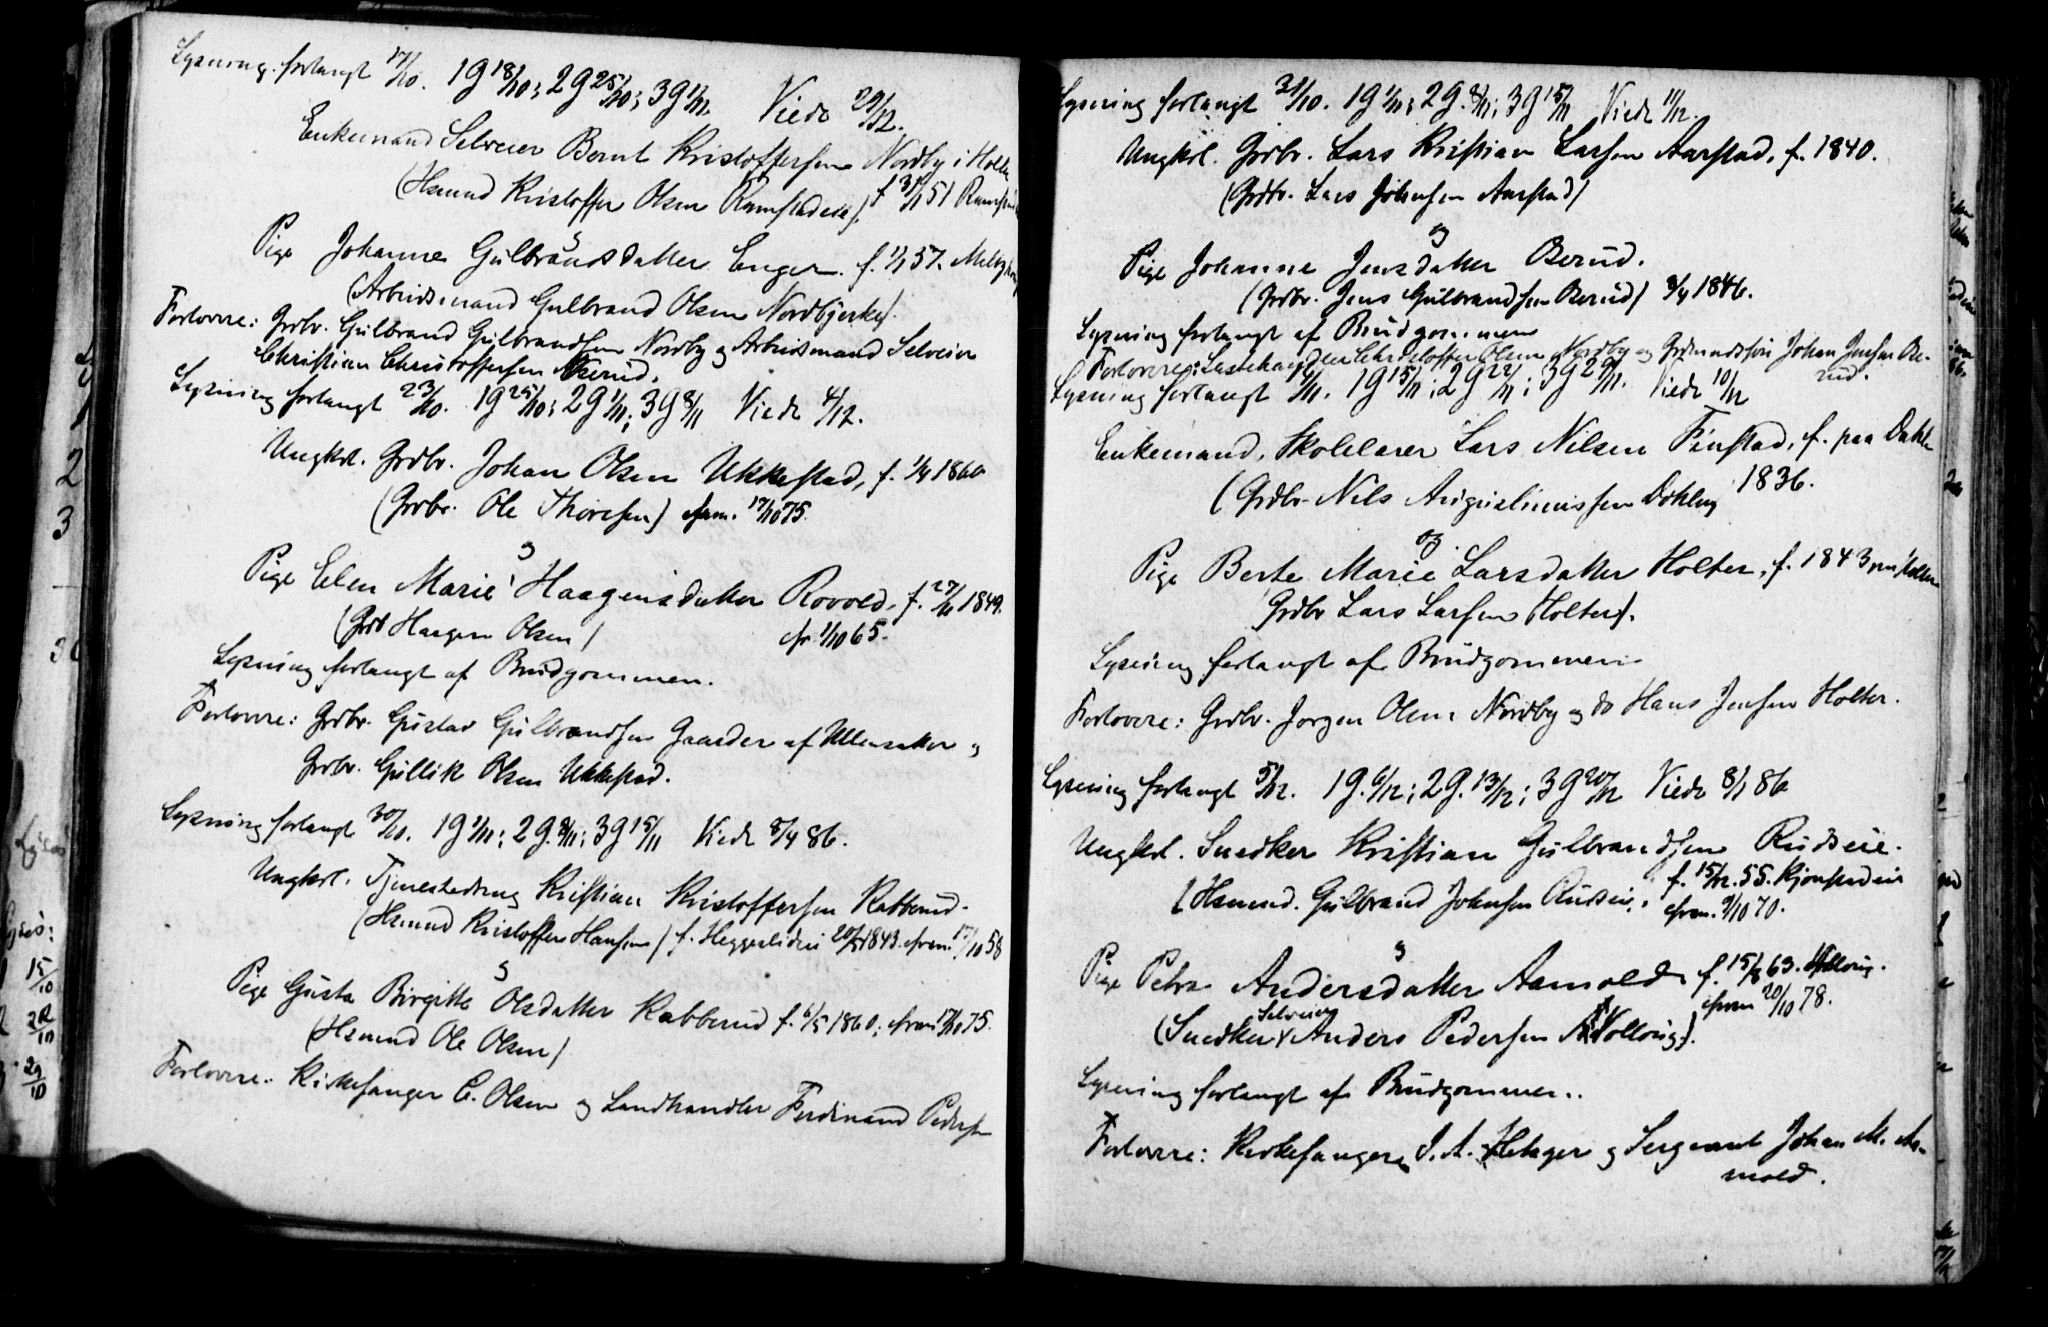 Lysning forlangt 17/10. 1 g 18/10; 2 g 25/10; 3 g 1/11. Viede 29/12.
Enkemand Selveier Bernt Kristoffersen Nordby i Holter
(Hsmnd Kristoffer Olsen Ramstadeie) f 31/1 51
og
Pige Johanne Gulbrandsdatter Enger. f. 1/1 57.
(Arbeidsmand Gulbrand Olsen Nordbjerke).
Forlovere: Grdbr. Gulbrand Gulbrandsen Nordby og Arbeidsmand Selveier
Christian Christoffersen
Lysning forlangt 23/10. 1 g 25/10; 2 g 1/11; 3 g 8/11 Viede 4/12.
Ungkrl. Grdbr. Johan Olsen Ukkestad, f. 1/4 1860
(Grdbr. Ole Thoresen) cfrm. 17/10 75.
og
Pige Elen Marie Haagensdatter Rovold, f. 27/11 1849.
(Grdb Haagen Olsen) cfr. 1/10 65.
Lysning forlangt af Brudgommen.
Forlovere: Grdbr. Gustav Gulbrandsen Gaarder af Ullensaker og
Grdbr. Gullik Olsen Ukkestad.
Lysning forlangt 30/10. 1 g 1/11; 2 g. 8/11; 3 g 15/11 Viede 8/4 86.
Ungkrl. Tjenestedreng Kristian Kristoffersen Rabberud.
(Hsmnd Kristoffer Hansen) f. 20/5 1843. cfrm. 17/10 58
og
Pige Gusta Birgitte Olsdatter Rabberud f. 6/5 1860; cfrm 17/10 75.
(Hsmnd Ole Olsen)
Forlovere: Kirkesanger C. Olsen og Landhandler Ferdinand Pedersen
Lysning forlangt 31/10. 1 g 1/11; 2 g. 8/11; 3 g 15/11 Viede 11/12.
Ungkrl. Grdbr. Lars Kristian Larsen Aarstad, f. 1840.
(Grdbr. Lars Johnsen Aarstad)
og
Pige Johanne Jensdatter Berud.
(Grdbr. Jens Gulbrandsen Berud) 8/4 1846.
Lysning forlangt af Brudgommen
Forlovere: Lastehandler Christoffer Olsen Nordby og Grdmandssøn Johan Jensen Be-
rud.
Lysning forlangt 6/11. 1 g 15/11; 2 g 22/11; 3 g 29/11. Viede 10/12
Enkemand, Skolelærer Lars Nilsen Finstad, f. paa Dahle
(Grdbr. Nils Augustinussen Dahleng 1836.
og
Pige Berte Marie Larsdatter Holter, f. 1843 paa Holter
(Grdbr Lars Larsen Holter).
Lysning forlangt af Brudgommen
Forlovere: Grdbr. Jørgen Olsen Nordby og do Hans Jensen Holter.
Lysning forlangt 5/12. 1 g. 6/12; 2 g. 13/12; 3 g 20/12 Viede 8/1 86
Ungkrl. Snedker Kristian Gulbrandsen Rudseie.
(Hsmnd. Gulbrand Johnsen Rudseie. f. 15/12. 55. Kjonstadeie
cfrm. 9/10 70.
og
Pige Petra Andersdatter Aamold f. 15/8 63.
cfrm 20/10 78.
(Snedker Selveier Anders Pedersen
Lysning forlangt af Brudgommen.
Forlovere: Kirkesanger S. A. Hetager og Sergeant Johan M. Aa-
mold.
2
3
15/10
29/10